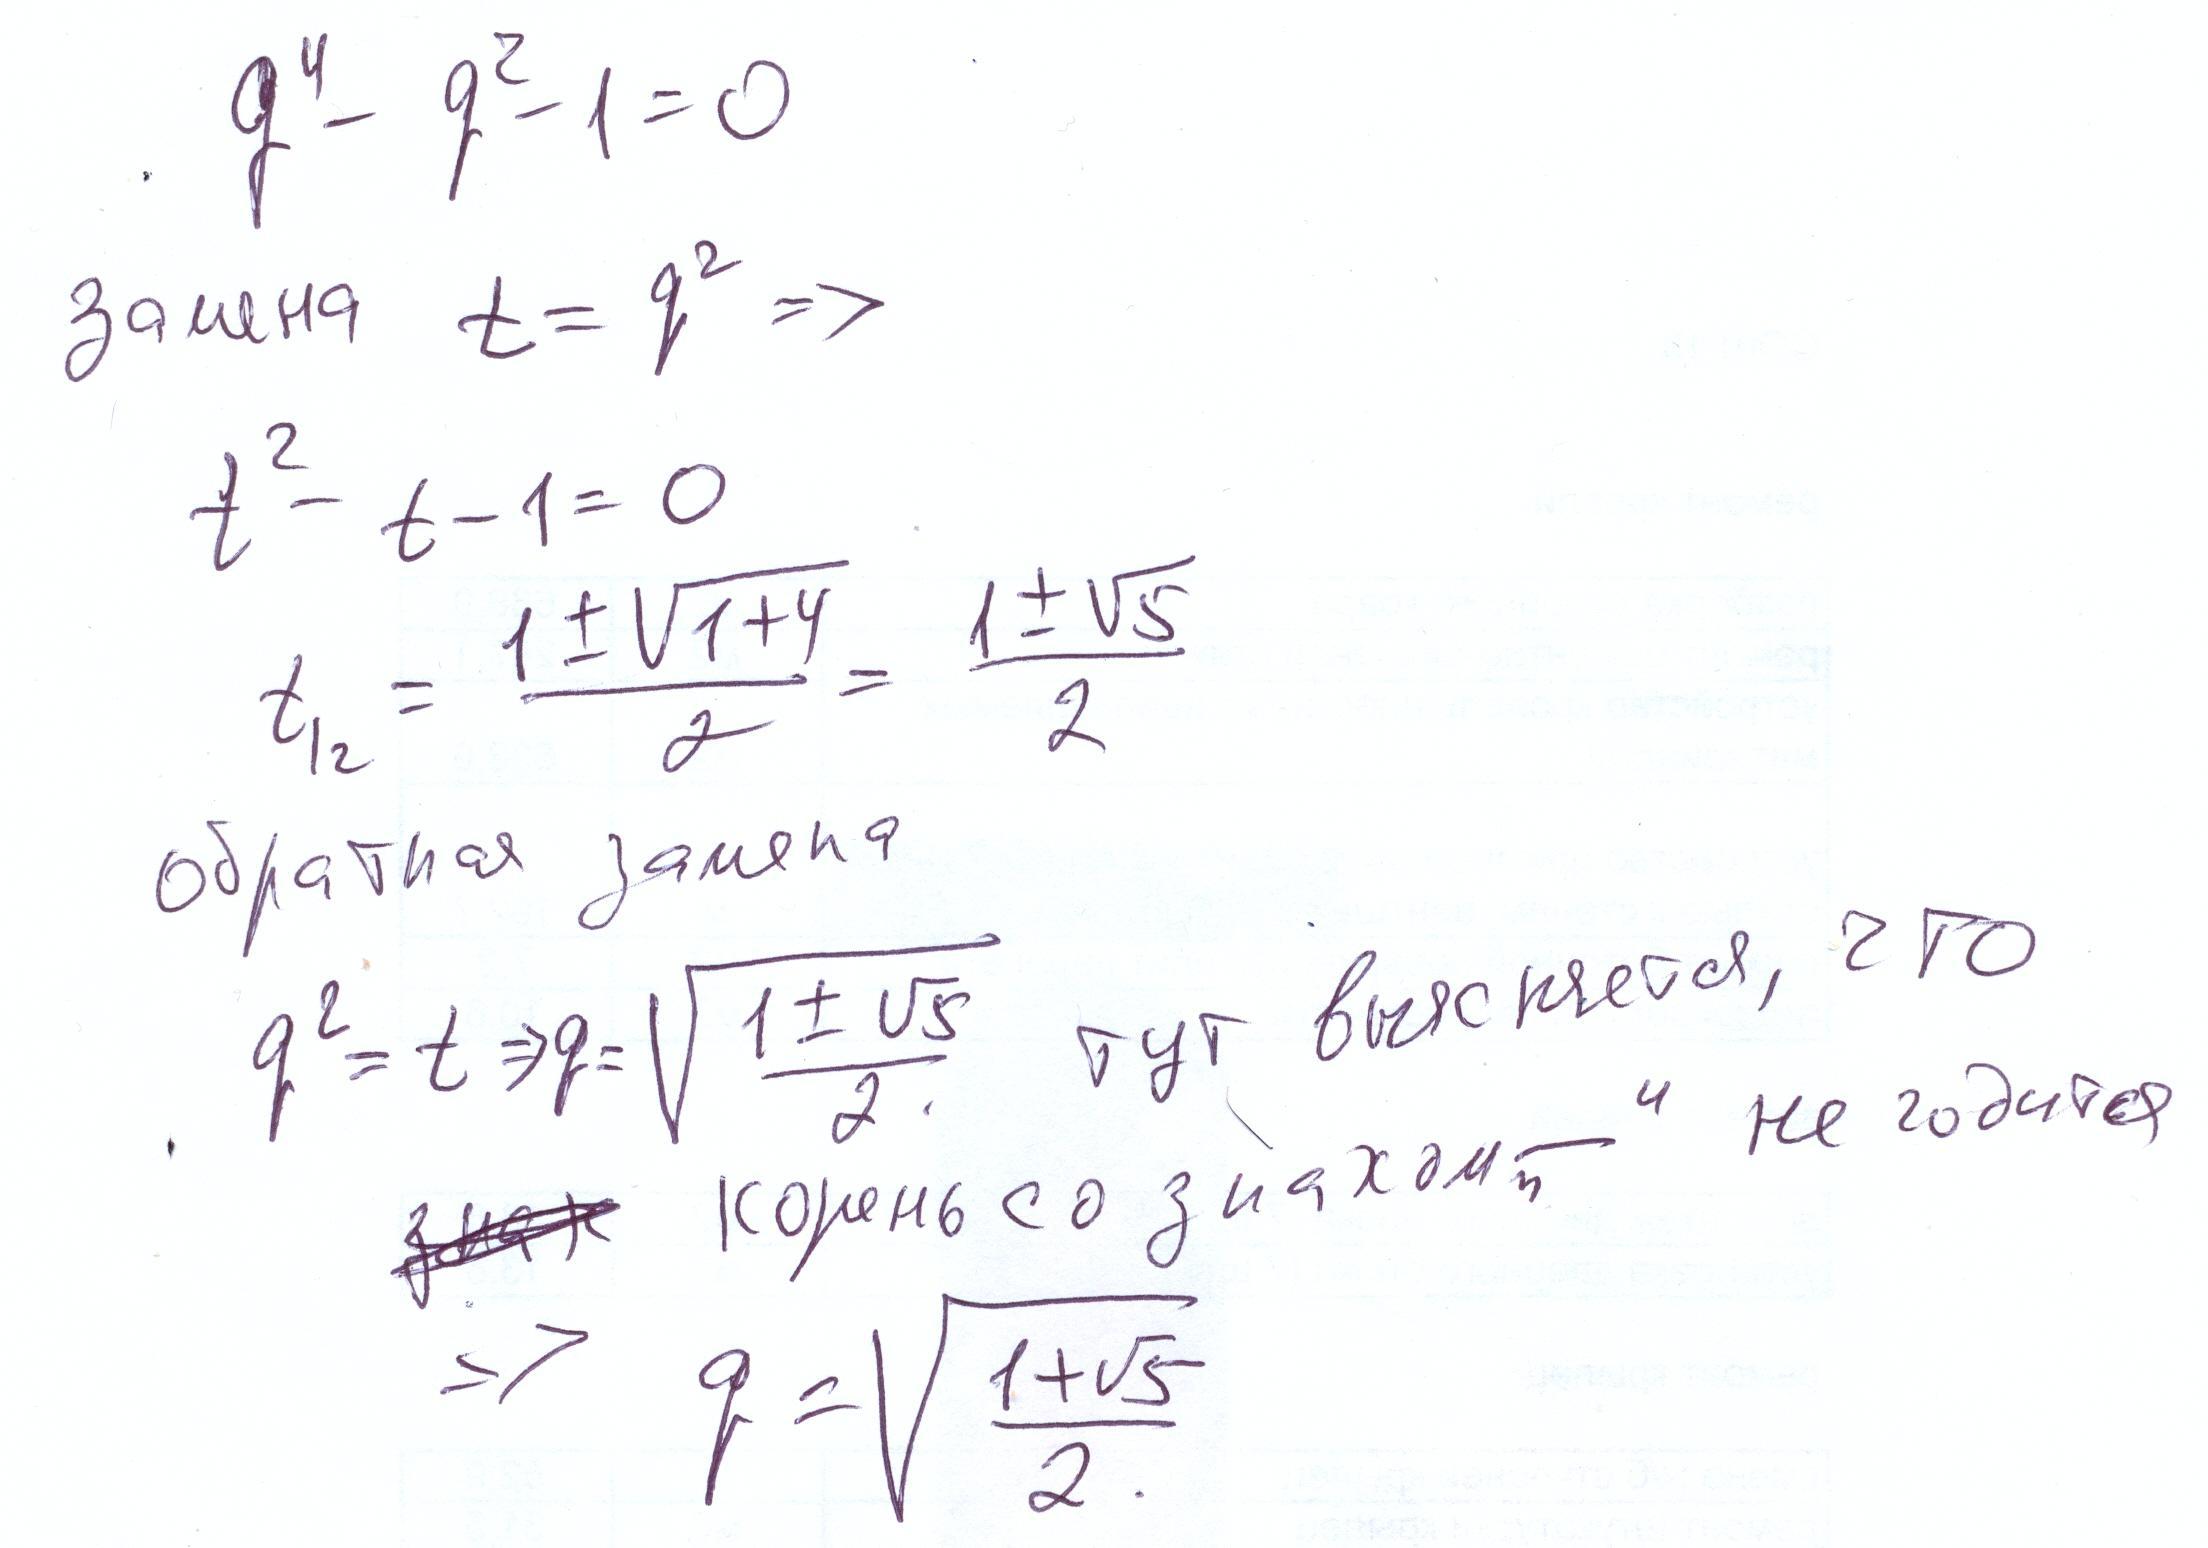 q⁴ - q² - 1 = 0
замена t = q² =>
t² - t - 1 = 0
t₁₂ = (1 ± √(1+4))/2 = (1 ± √5)/2
обратная замена
q² = t => q = √((1 ± √5)/2). тут выясняется, что
корень со знаком „—“ не годится
=> q = √((1+√5)/2).